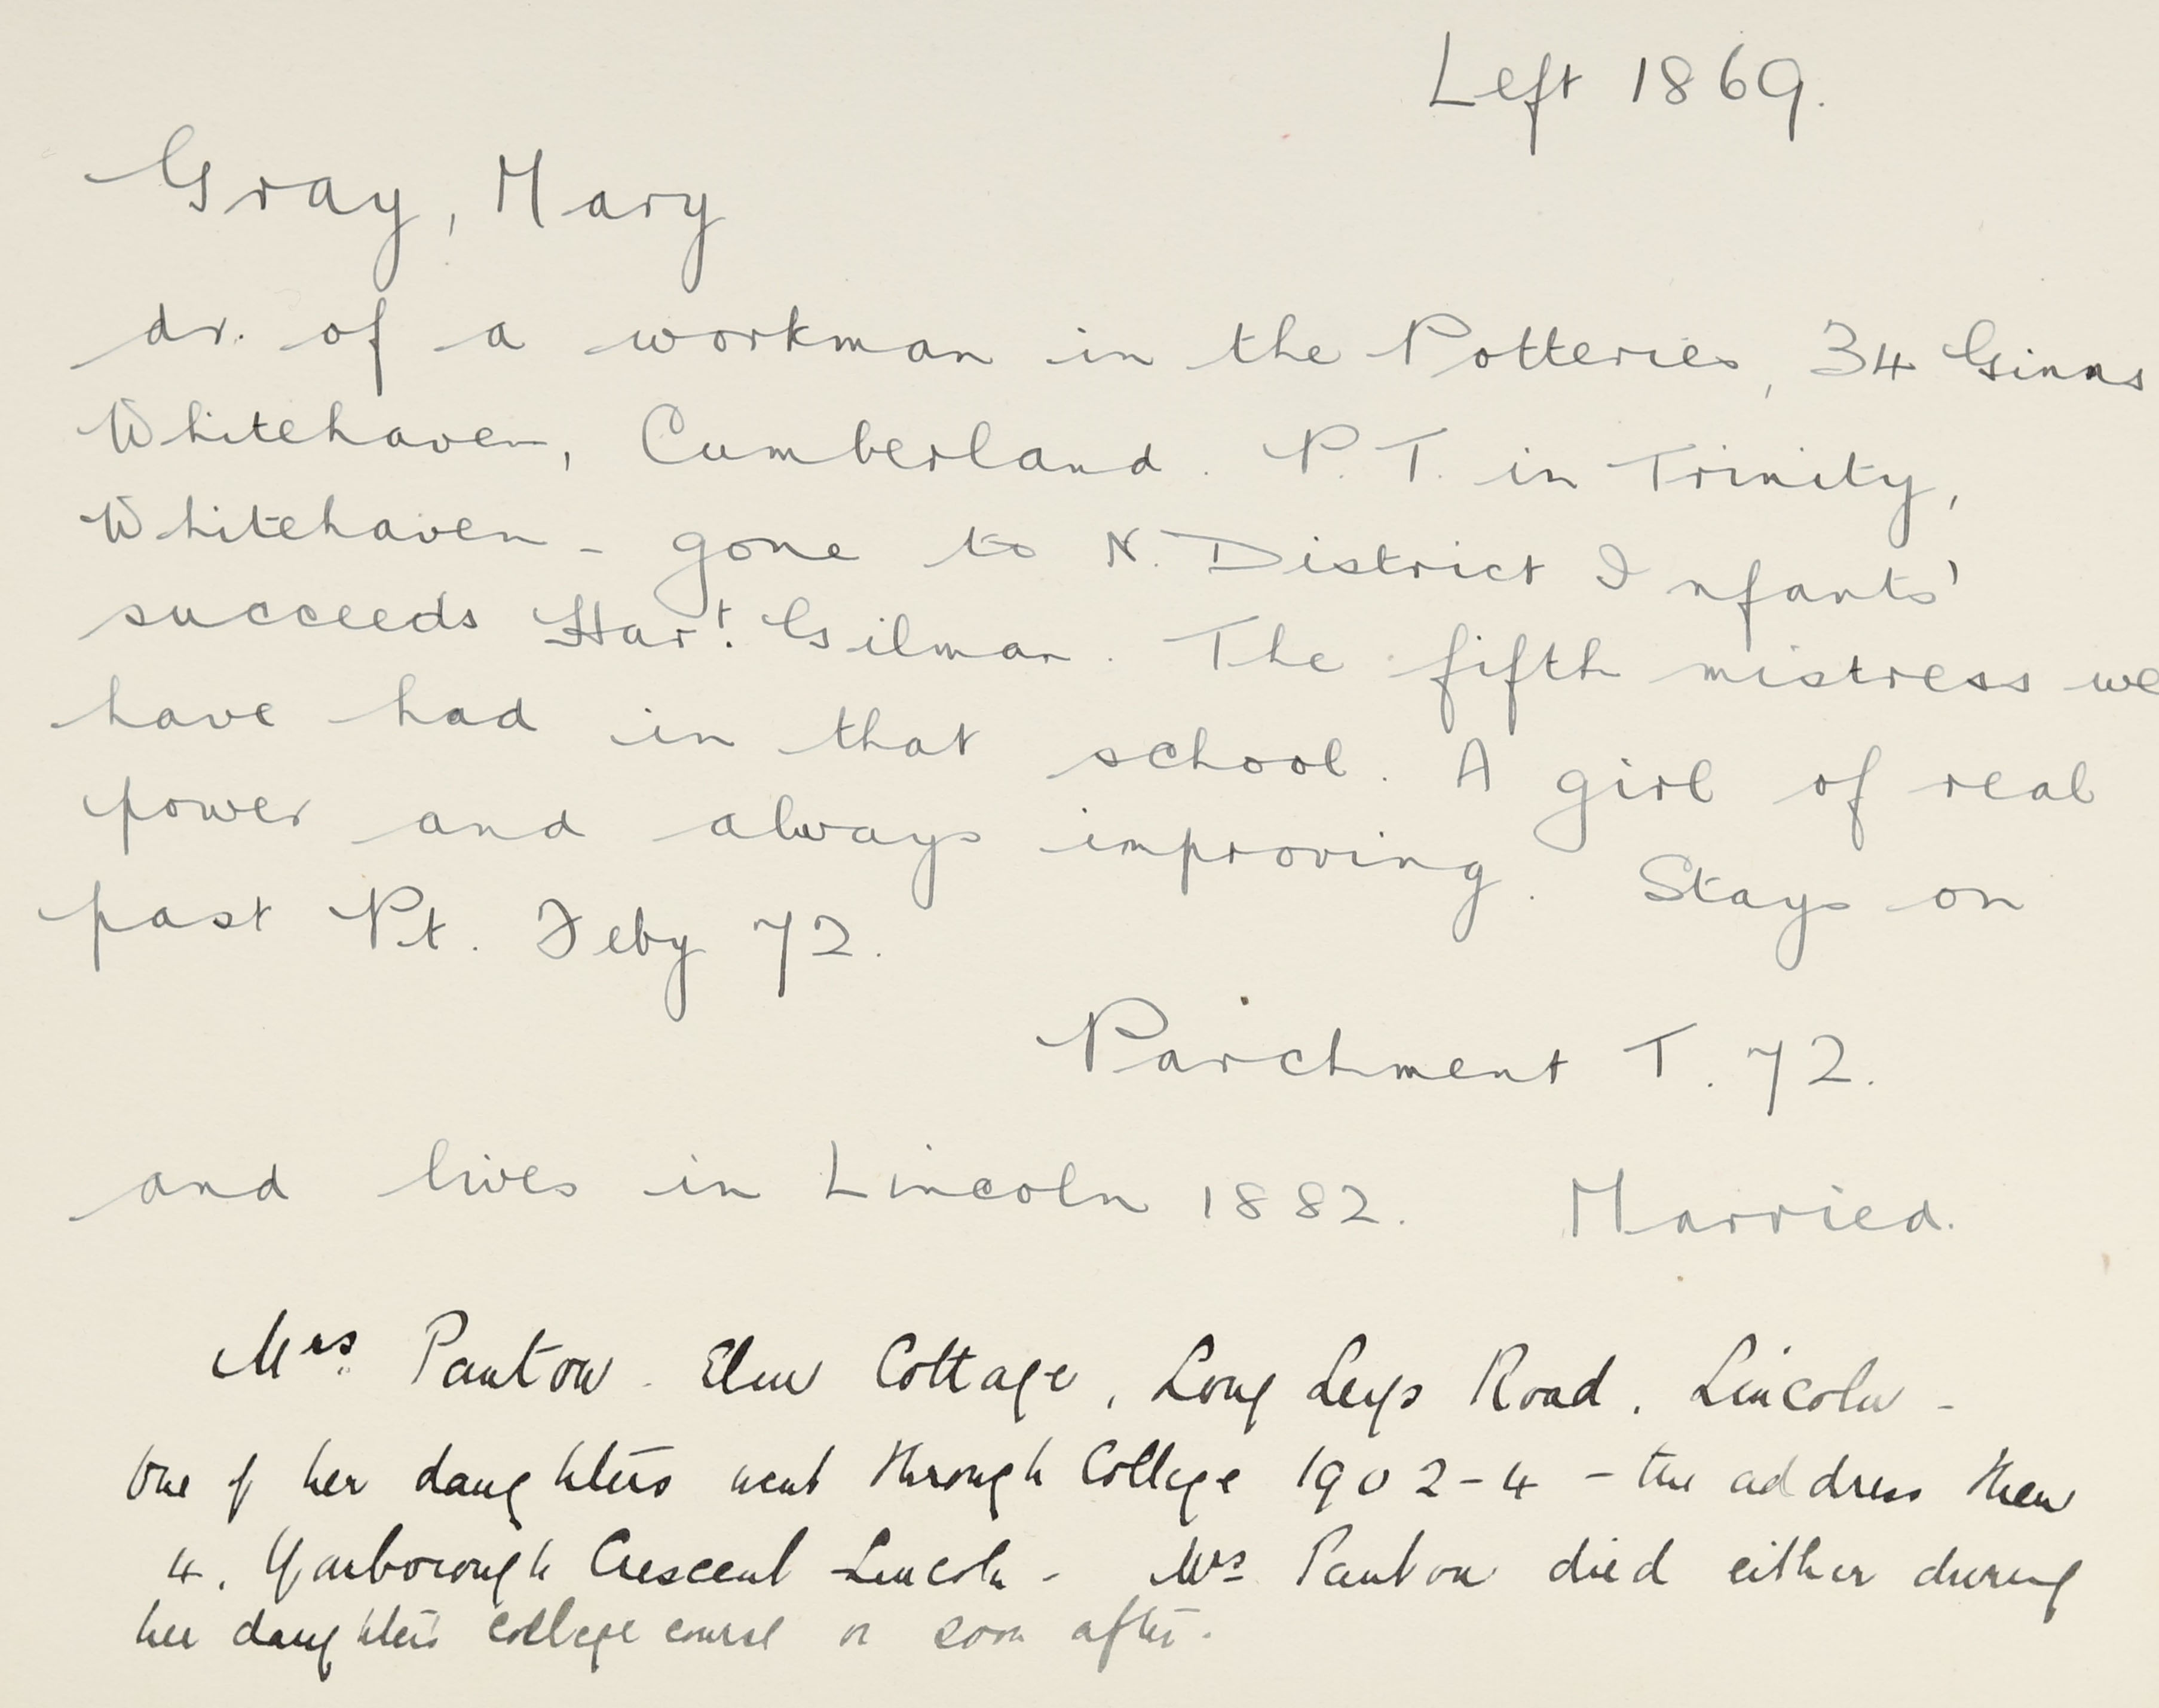 Left 1869.
Gray, Mary
dr. of a workman in the Potteries, 34 Ginns
Whitehaven, Cumberland. P.T. in Trinity,
Whitehaven - gone to N. District Infants'
succeeds Har^t. Gilman. The fifth mistress we
have had in that school. A girl of real
power and always improving. Stays on
past Pt. Feby 72.
Parchment T. 72.
and lives in Lincoln 1882. Married.
Mrs. Panton. Elm Cottage, Long Leys Road. Lincoln -
One of her daughters went through College 1902-4 - the address then
4. Yarborough Crescent Lincoln - Mrs Panton died either during
her daughters college course or soon after.